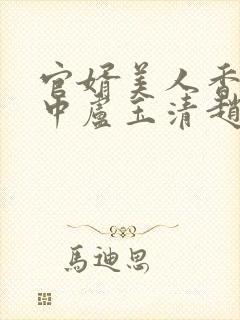 官婿美人香
中盧玉清趙
馬迪思